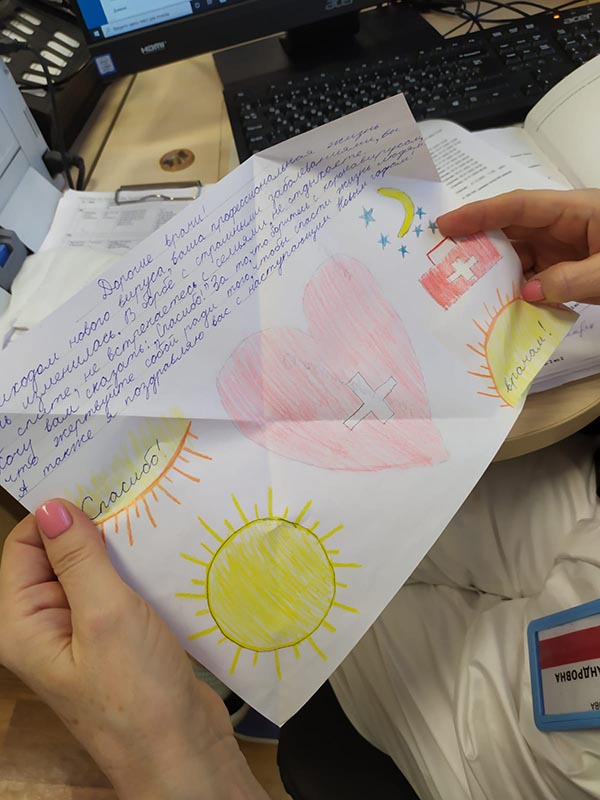 Дорогие врачи!
иходом нового вируса, ваша профессиональная жизнь
ь изменилась. В борьбе с страшными заболеваниями, вы
спите, не встречаетесь с семьями, не отдыхаете.
Хочу вам сказать: "Спасибо!" За то, что боритесь с коронавирусом,
что жертвуйте собой ради того, чтобы спасти жизнь людям.
А также я поздравляю вас с наступающим Новым годом!
Спасибо!
врачам!
HDMI
acer
acer
АНДРОВНА